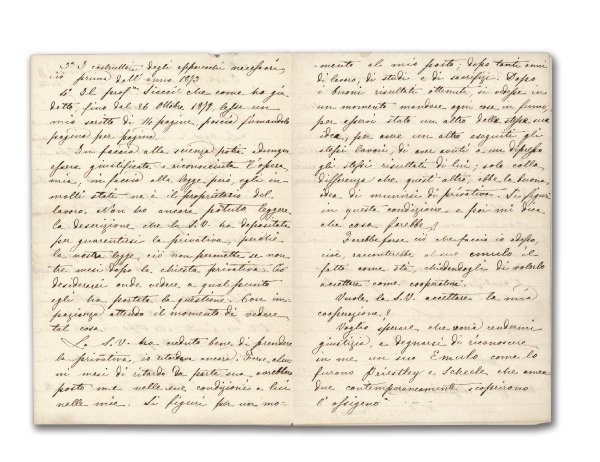 3º I costruttori degli apparecchi necessari,
ciò prima dell'anno 1873
4º Il profre Siacci che come ha già
detto, fino dal 26 Ottobre 1879, lesse un
mio scritto di 14 pagine, poscia firmandolo
pagina per pagina.
In faccia alla scienza potrà adunque
essere giustificata e riconosciuta l'opera
mia, in faccia alla legge però, egli in
molti stati ne è il proprietario del
lavoro. Non ho ancora potuto leggere
la descrizione che la S.V. ha depositata
per guarentirsi la privativa, perchè
la nostra legge, ciò non permette se non
tre mesi dopo la chiesta privativa. Ciò
desidererei onde vedere a qual punto
egli ha portata la questione. Con im-
pazienza attendo il momento di vedere
tal cosa.
La S.V. ha creduto bene di prendere
la privativa, io ritardare ancora. Forse, alcu-
ni mesi di ritardo da parte sua avrebbero
posto me nelle sue condizioni e lui
nelle mie. Si figuri per un mo-
mento al mio posto; dopo tanti anni
di lavoro, di studi e di sacrifizi. Dopo
i buoni risultati ottenuti, si vedesse in
un momento mandare ogni cosa in fumo,
per esservi stato un altro della stessa sua
idea, per avere un altro eseguiti gli
stessi lavori, di aver avuti a un dipresso
gli stessi risultati di lui; solo colla
differenza che quest'altro, ebbe la buona
idea di munirsi di privativa. Si figuri
in questa condizione e poi mi dica
che cosa farebbe?
Farebbe forse ciò che faccio io adesso,
cioè, racconterebbe al suo emulo il
fatto come sta, chiedendogli di volerlo
accettare come cooperatore.
Vuole la S.V. accettare la mia
cooperazione?
Voglio sperare che vorrà rendermi
giustizia, e degnarsi di riconoscere
in me un suo Emulo come lo
furono Priestley e Scheele che amen-
due contemporaneamente scoprirono
l'ossigeno"